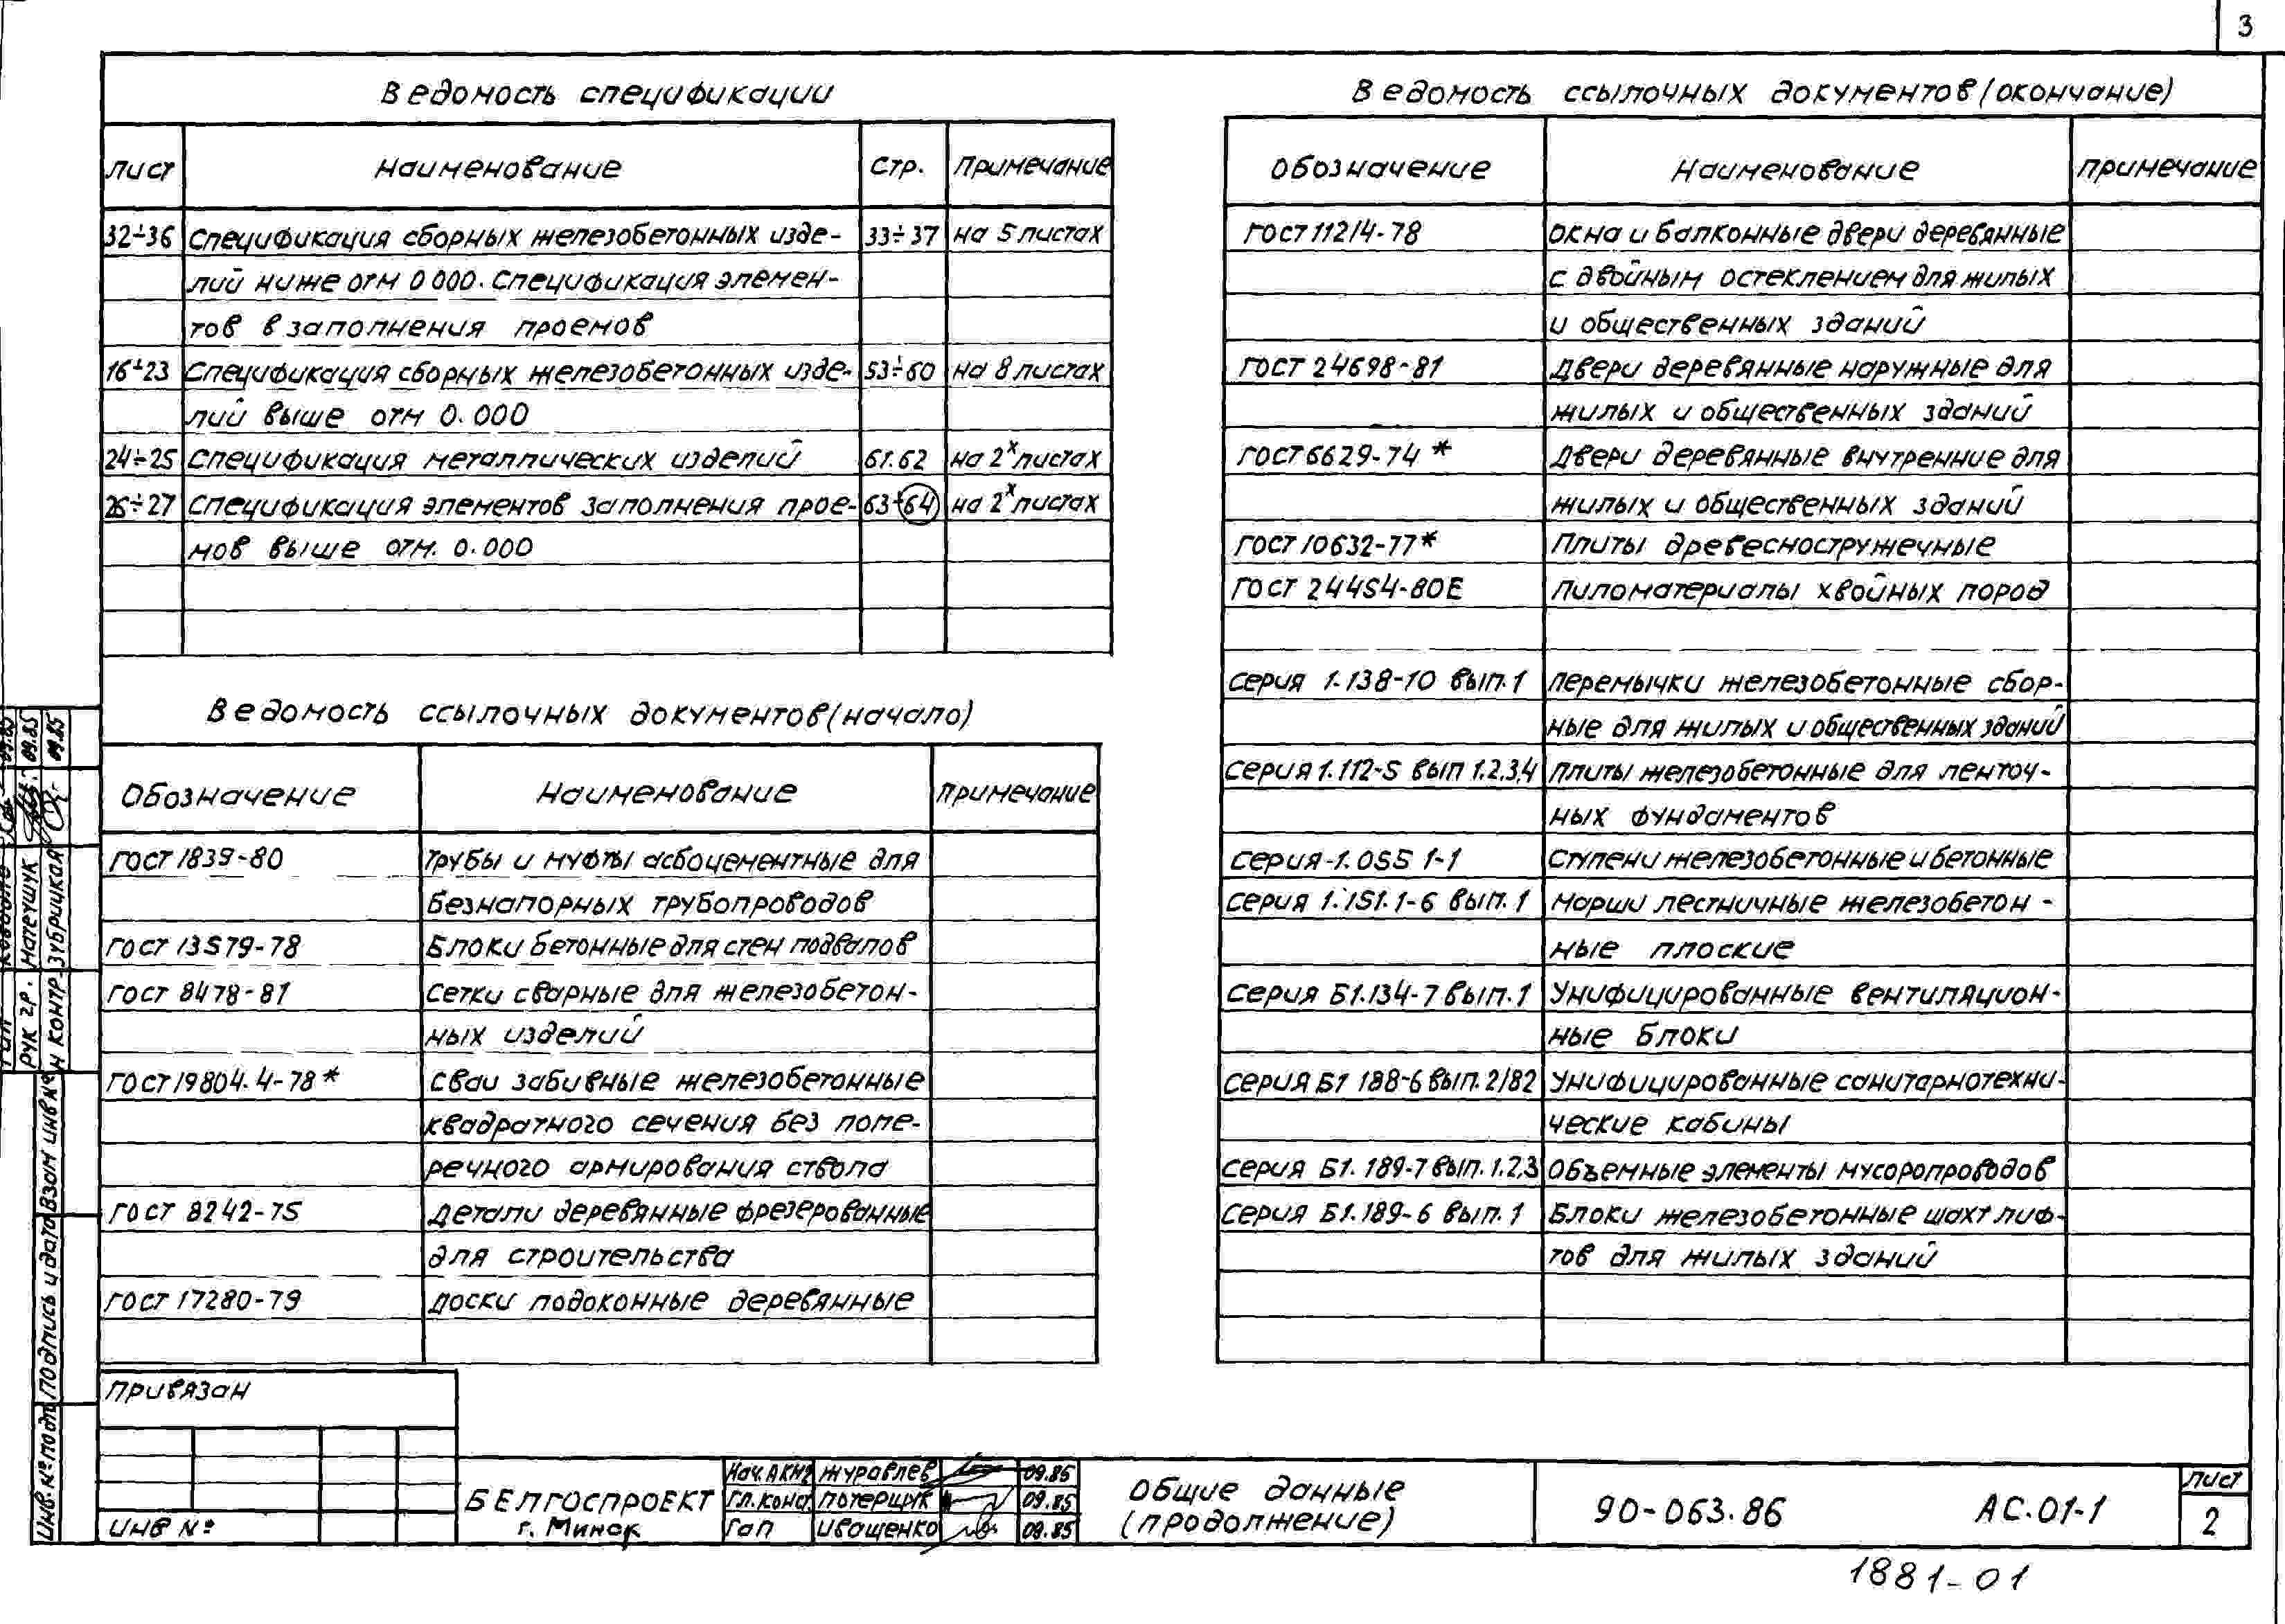 3
Ведомость спецификации
Лист Наименование Стр. Примечание
32÷36 Спецификация сборных железобетонных изде- 33÷37 на 5 листах
лий ниже отм 0 000. Спецификация элемен-
тов в заполнения проемов
16÷23 Спецификация сборных железобетонных изде- 53÷60 на 8 листах
лий выше отм 0.000
24÷25 Спецификация металлических изделий 61.62 на 2х листах
26÷27 Спецификация элементов заполнения прое- 63÷64 на 2х листах
мов выше отм. 0.000
Ведомость ссылочных документов (начало)
Обозначение Наименование Примечание
ГОСТ 1839-80 Трубы и муфты асбоцементные для
безнапорных трубопроводов
ГОСТ 13579-78 Блоки бетонные для стен подвалов
ГОСТ 8478-81 Сетки сварные для железобетон-
ных изделий
ГОСТ 19804.4-78* Сваи забивные железобетонные
квадратного сечения без попе-
речного армирования ствола
ГОСТ 8242-75 Детали деревянные фрезерованные
для строительства
ГОСТ 17280-79 Доски подоконные деревянные
Ведомость ссылочных документов (окончание)
Обозначение Наименование Примечание
ГОСТ 11214-78 Окна и балконные двери деревянные
с двойным остеклением для жилых
и общественных зданий
ГОСТ 24698-81 Двери деревянные наружные для
жилых и общественных зданий
ГОСТ 6629-74* Двери деревянные внутренние для
жилых и общественных зданий
ГОСТ 10632-77* Плиты древесностружечные
ГОСТ 24454-80Е Пиломатериалы хвойных пород
Серия 1.138-10 вып.1 Перемычки железобетонные сбор-
ные для жилых и общественных зданий
Серия 1.112-5 вып 1.2,3,4 Плиты железобетонные для ленточ-
ных фундаментов
Серия-1.055 1-1 Ступени железобетонные и бетонные
Серия 1.151.1-6 вып.1 Марши лестничные железобетон-
ные плоские
Серия Б1.134-7 вып.1 Унифицированные вентиляцион-
ные блоки
Серия Б1 188-6 вып.2/82 Унифицированные санитарнотехни-
ческие кабины
Серия Б1.189-7 вып.1.2,3 Объемные элементы мусоропроводов
Серия Б1.189-6 вып.1 Блоки железобетонные шахт лиф-
тов для жилых зданий
Рук гр. Матешук 09.85
Н контр. Зубрицкая 09.85
Инв. № подп Подпись и дата Взам инв №
Привязан
Инв №
БЕЛГОСПРОЕКТ
г. Минск
Нач. АКМ2 Журавлев 09.85
Гл. конс. Потерщук 09.85
Гап Иващенко 09.85
Общие данные
(продолжение)
90-063.86 АС.01-1
Лист
2
1881-01